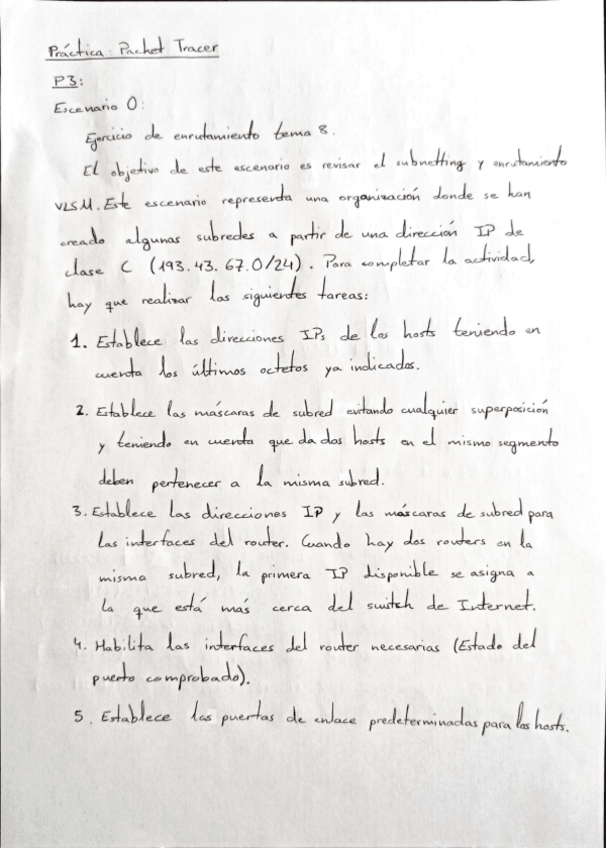 Práctica: Packet Tracer
P3:
Escenario 0:
Ejercicio de enrutamiento tema 8.
El objetivo de este escenario es revisar el subnetting y enrutamiento
VLSM. Este escenario representa una organización donde se han
creado algunas subredes a partir de una dirección IP de
clase C (193.43.67.0/24). Para completar la actividad,
hay que realizar las siguientes tareas:
1. Establece las direcciones IPs de los hosts teniendo en
cuenta los últimos octetos ya indicados.
2. Establece las máscaras de subred evitando cualquier superposición
y teniendo en cuenta que da dos hosts en el mismo segmento
deben pertenecer a la misma subred.
3. Establece las direcciones IP y las máscaras de subred para
las interfaces del router. Cuando hay dos routers en la
misma subred, la primera IP disponible se asigna a
la que está más cerca del switch de Internet.
4. Habilita las interfaces del router necesarias (Estado del
puerto comprobado).
5. Establece las puertas de enlace predeterminadas para los hosts.